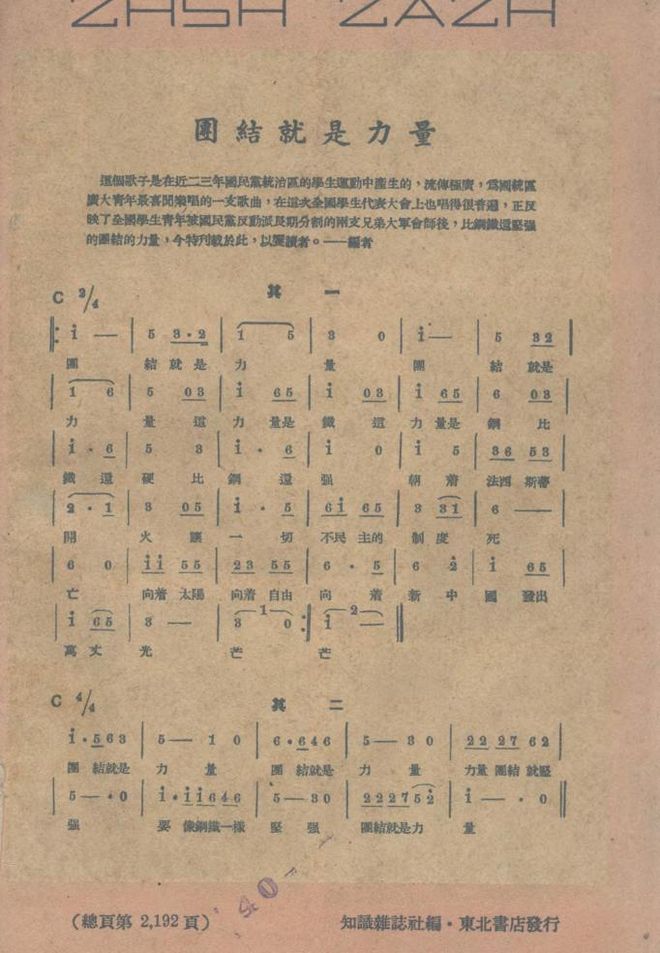 ZHSH ZAZH
團結就是力量
這個歌子是在近二三年國民黨統治區的學生運動中產生的，流傳極廣，爲國統區
廣大青年最喜聞樂唱的一支歌曲，在這次全國學生代表大會上也唱得很普遍，正反
映了全國學生青年被國民黨反動派長期分割的兩支兄弟大軍會師後，比鋼鐵還堅强
的團結的力量，今特刊載於此，以饗讀者。——編者
C 2/4 其一
i — | 5 3·2 | 1 5 | 3 0 | i — | 5 32
團 結 就 是 力 量 團 結 就是
1 6 | 5 03 | i 65 | i 03 | i 65 | 6 03
力 量 這 力 量是 鐵 這 力 量是 鋼 比
i · 6 | 5 3 | i · 6 | i 0 | i 5 | 36 53
鐵 還 硬 比 鋼 還 强 朝 着 法西 斯蒂
2 · 1 | 3 05 | i · 5 | 6i 65 | 3 31 | 6 —
開 火 讓 一 切 不民 主的 制 度 死
6 0 | ii 55 | 23 55 | 6 · 5 | 6 2 | i 65
亡 向着 太陽 向着 自由 向 着 新 中 國 發出
i 65 | 3 — | 3 1 0 :| i 2 —
萬 丈 光 芒 芒
C 4/4 其二
i·563 | 5— 1 0 | 6·646 | 5— 30 | 22 27 62
團 結就是 力 量 團 結就是 力 量 力量 團結 就堅
5—·0 | i·ii646 | 5—30 | 222752 | i — · 0
强 要 像鋼鐵一樣 堅 强 團結就是力 量
40
（總頁第 2,192 頁） 知識雜誌社編·東北書店發行